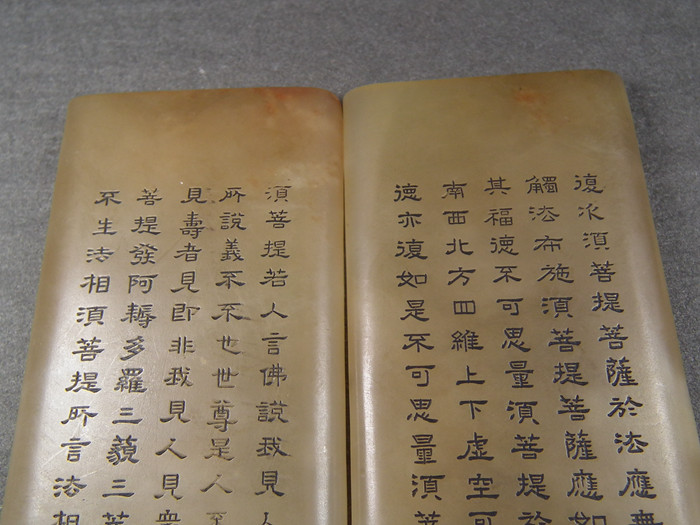 復次須菩提菩薩於法應無
觸法布施須菩提菩薩應如
其福德不可思量須菩提於
南西北方四維上下虛空可
德亦復如是不可思量須菩
須菩提若人言佛說我見人
所說義不不也世尊是人
見壽者見即非我見人見衆
菩提發阿耨多羅三藐三菩
不生法相須菩提所言法相